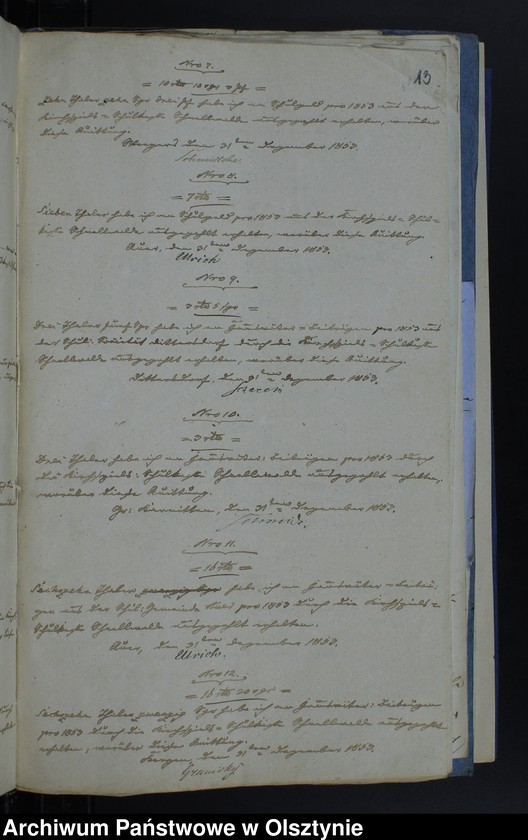 13
Nro 7.
= 10 rtlr 10 sgr 3 pf =
Zehn Thaler zehn Sgr drei pf habe ich an Schulgeld pro 1853 aus der
Kirchspiels = Schulkasse Schnellwalde ausgezahlt erhalten, worüber
diese Quittung.
den 31ten Dezember 1853.
Nro 8.
= 7 rtlr =
Sieben Thaler habe ich an Schulgeld pro 1853 aus der Kirchspiels = Schul=
kasse Schnellwalde ausgezahlt erhalten, worüber diese Quittung.
Auer, den 31ten Dezember 1853.
Ulrich
Nro 9.
= 3 rtlr 5 sgr =
Drei Thaler fünf Sgr habe ich an = Beiträgen pro 1853 aus
der Schul: Societät durch die Kirchspiels = Schulkasse
Schnellwalde ausgezahlt erhalten, worüber diese Quittung.
den 31ten Dezember 1853.
Nro 10.
= 3 rtlr =
Drei Thaler habe ich an : Beiträgen pro 1853 durch
die Kirchspiels: Schulkasse Schnellwalde ausgezahlt erhalten,
worüber diese Quittung.
Gr: den 31ten Dezember 1853.
Nro 11.
= 16 rtlr =
Sechszehn Thaler habe ich an = Beiträ=
gen aus der Schul: Gemeinde pro 1853 durch die Kirchspiels =
Schulkasse Schnellwalde ausgezahlt erhalten.
Auer, den 31ten Dezember 1853.
Ulrich.
Nro 12.
= 16 rtlr 20 sgr =
Sechszehn Thaler zwanzig Sgr habe ich an : Beiträgen
pro 1853 durch die Kirchspiels = Schulkasse Schnellwalde ausgezahlt
erhalten, worüber diese Quittung.
den 31ten Dezember 1853.
Archiwum Państwowe w Olsztynie